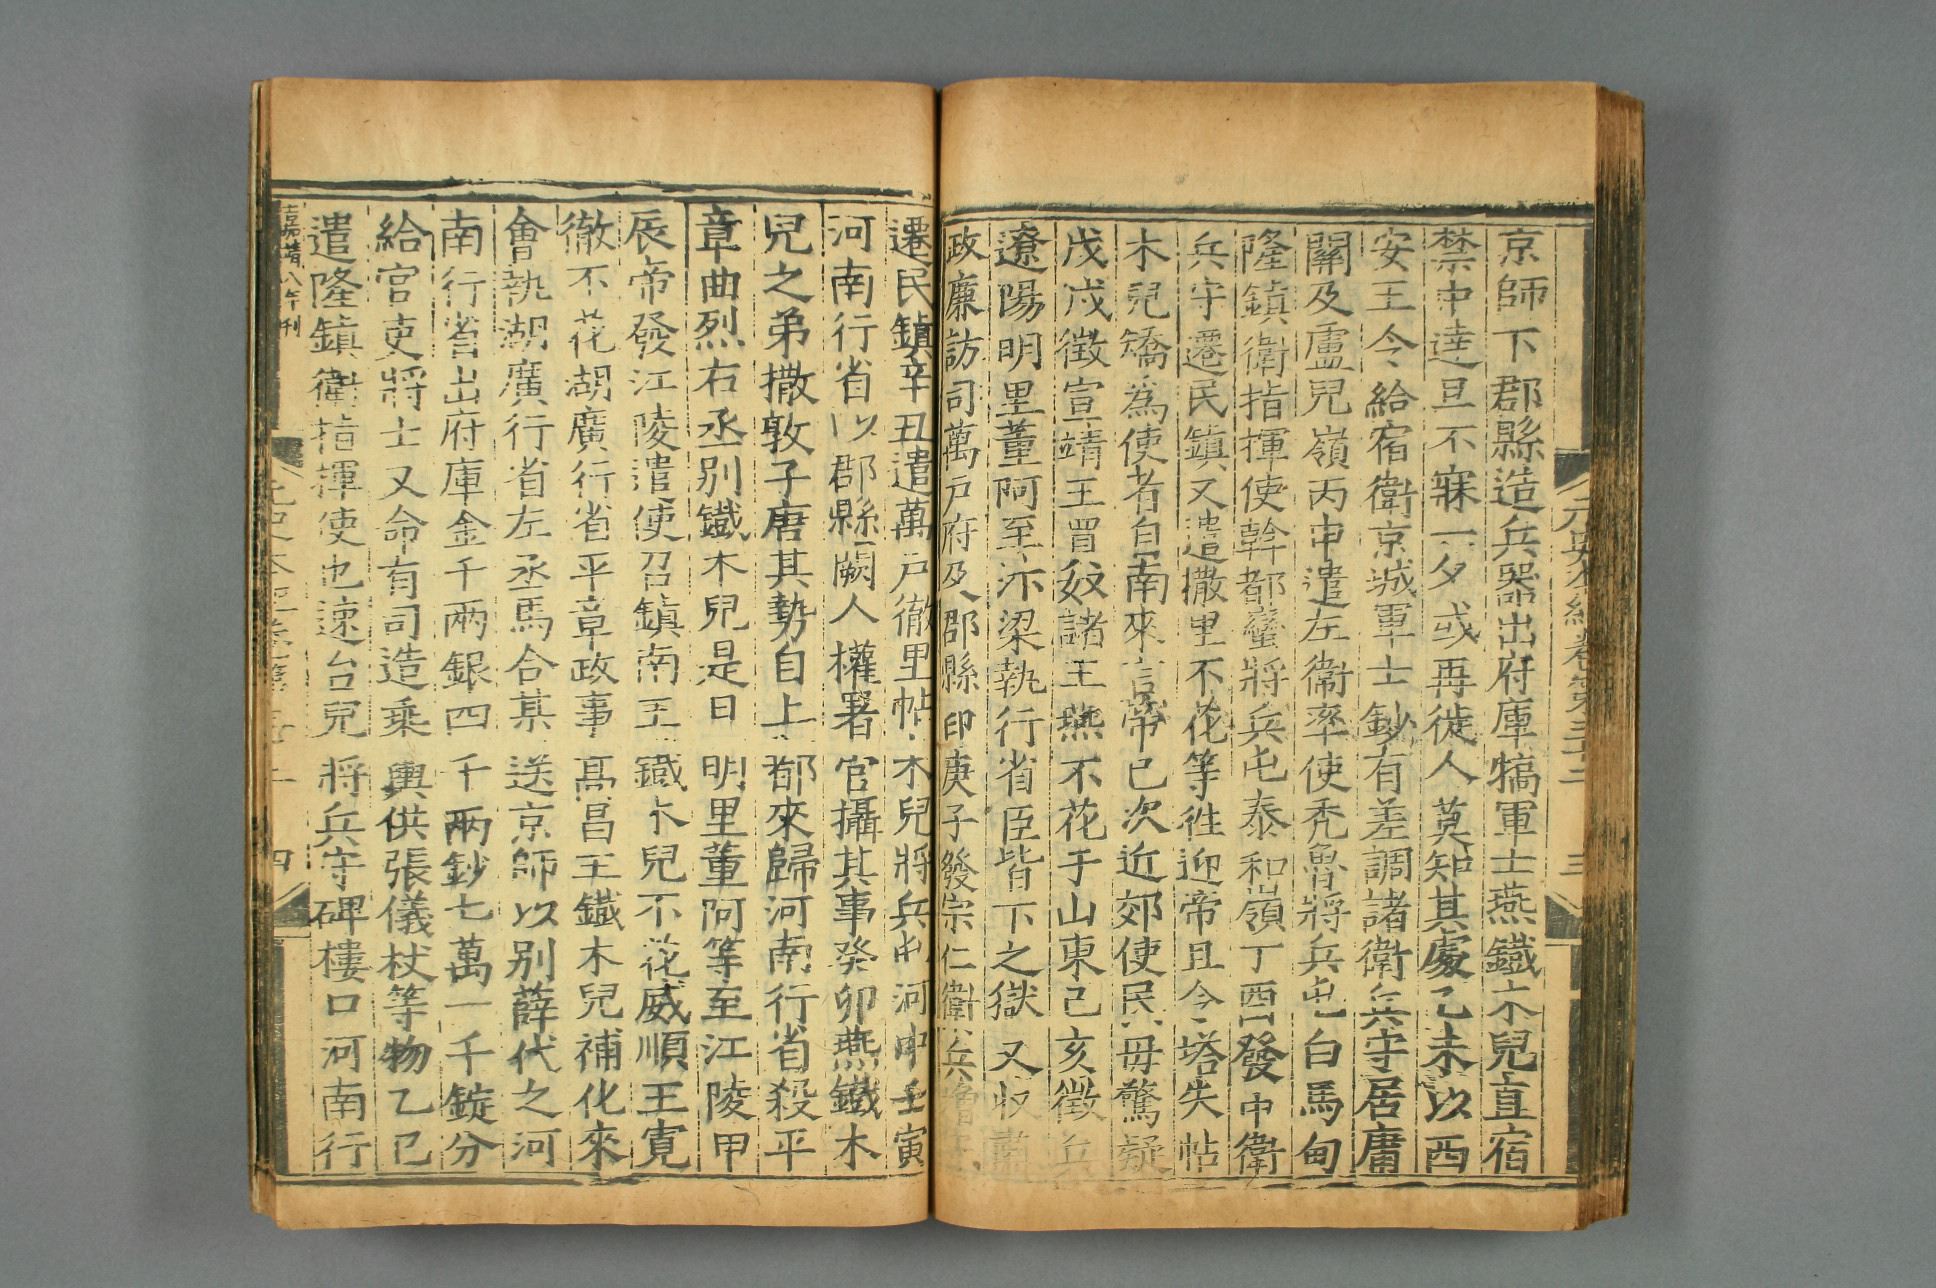 京師下郡縣造兵器出府庫犒軍士燕鐵木兒直宿
禁中達旦不寐一夕或再徙人莫知其處乙未以西
安王令給宿衛京城軍士鈔有差調諸衛兵守居庸
關及盧兒嶺丙申遣左衞率使禿魯將兵屯白馬甸
隆鎮衛指揮使斡都蠻將兵屯泰和嶺丁酉發中衛
兵守遷民鎮又遣撒里不花等徃迎帝且令塔失帖
木兒矯為使者自南來言帝已次近郊使民毋驚疑
戊戌徴宣靖王買奴諸王燕不花于山東己亥徴兵
遼陽明里董阿至汴梁執行省臣皆下之獄又收肅
政廉訪司萬戸府及郡縣印庚子發宗仁衛兵增守
遷民鎮辛丑遣萬戸徹里帖木兒將兵屯河中壬寅
河南行省以郡縣闕人權署官攝其事癸卯燕鐵木
兒之弟撒敦子唐其勢自上都來歸河南行省殺平
章曲烈右丞别鐵木兒是日明里董阿等至江陵甲
辰帝發江陵遣使召鎮南王鐵木兒不花威順王寛
徹不花湖廣行省平章政事髙昌王鐵木兒補化來
會執湖廣行省左丞馬合某送京師以别薛代之河
南行省出府庫金千兩銀四千兩鈔七萬一千錠分
給官吏將士又命有司造乘輿供張儀杖等物乙巳
遣隆鎮衛指揮使也速台兒將兵守碑樓口河南行
元史本紀卷第三十二 三
嘉靖八年刊
元史本紀卷第三十二 四